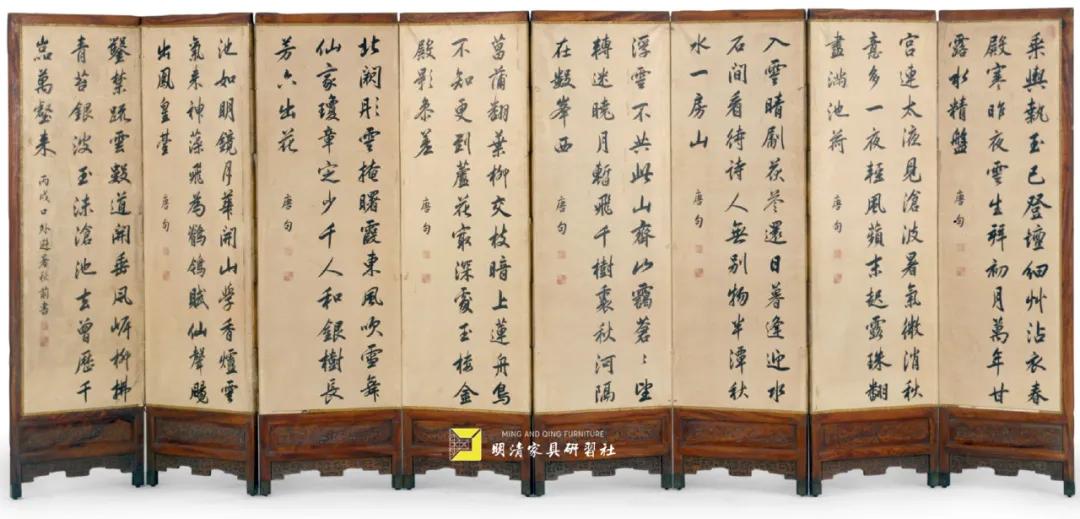 乘輿執玉已登壇細艸沾衣春
殿寒昨夜雲生拜初月萬年甘
露水精盤
唐句
宮連太液見滄波暑氣微消秋
意多一夜輕風蘋末起露珠翻
盡滿池荷
唐句
入雲晴劚茯苓還日暮逢迎木
石間看待詩人無別物半潭秋
水一房山
唐句
浮雲不共此山齊山靄蒼〻望
轉迷曉月暫飛千樹裏秋河隔
在數峯西
唐句
菖蒲翻葉柳交枝暗上蓮舟鳥
不知更到蘆花最深處玉樓金
殿影參差
唐句
北闕彤雲掩曙霞東風吹雪舞
仙家瓊章定少千人和銀樹長
芳六出花
唐句
池如明鏡月華開山學香爐雲
氣來神藻飛為鶺鴒賦仙聲颺
出鳳皇臺
唐句
鑿禁疏雲數道開垂風岸柳拂
青苔銀波玉沫滄池去曾歷千
嵓萬壑來
丙戌口外避暑秋前書
MING AND QING FURNITURE
明清家具研習社